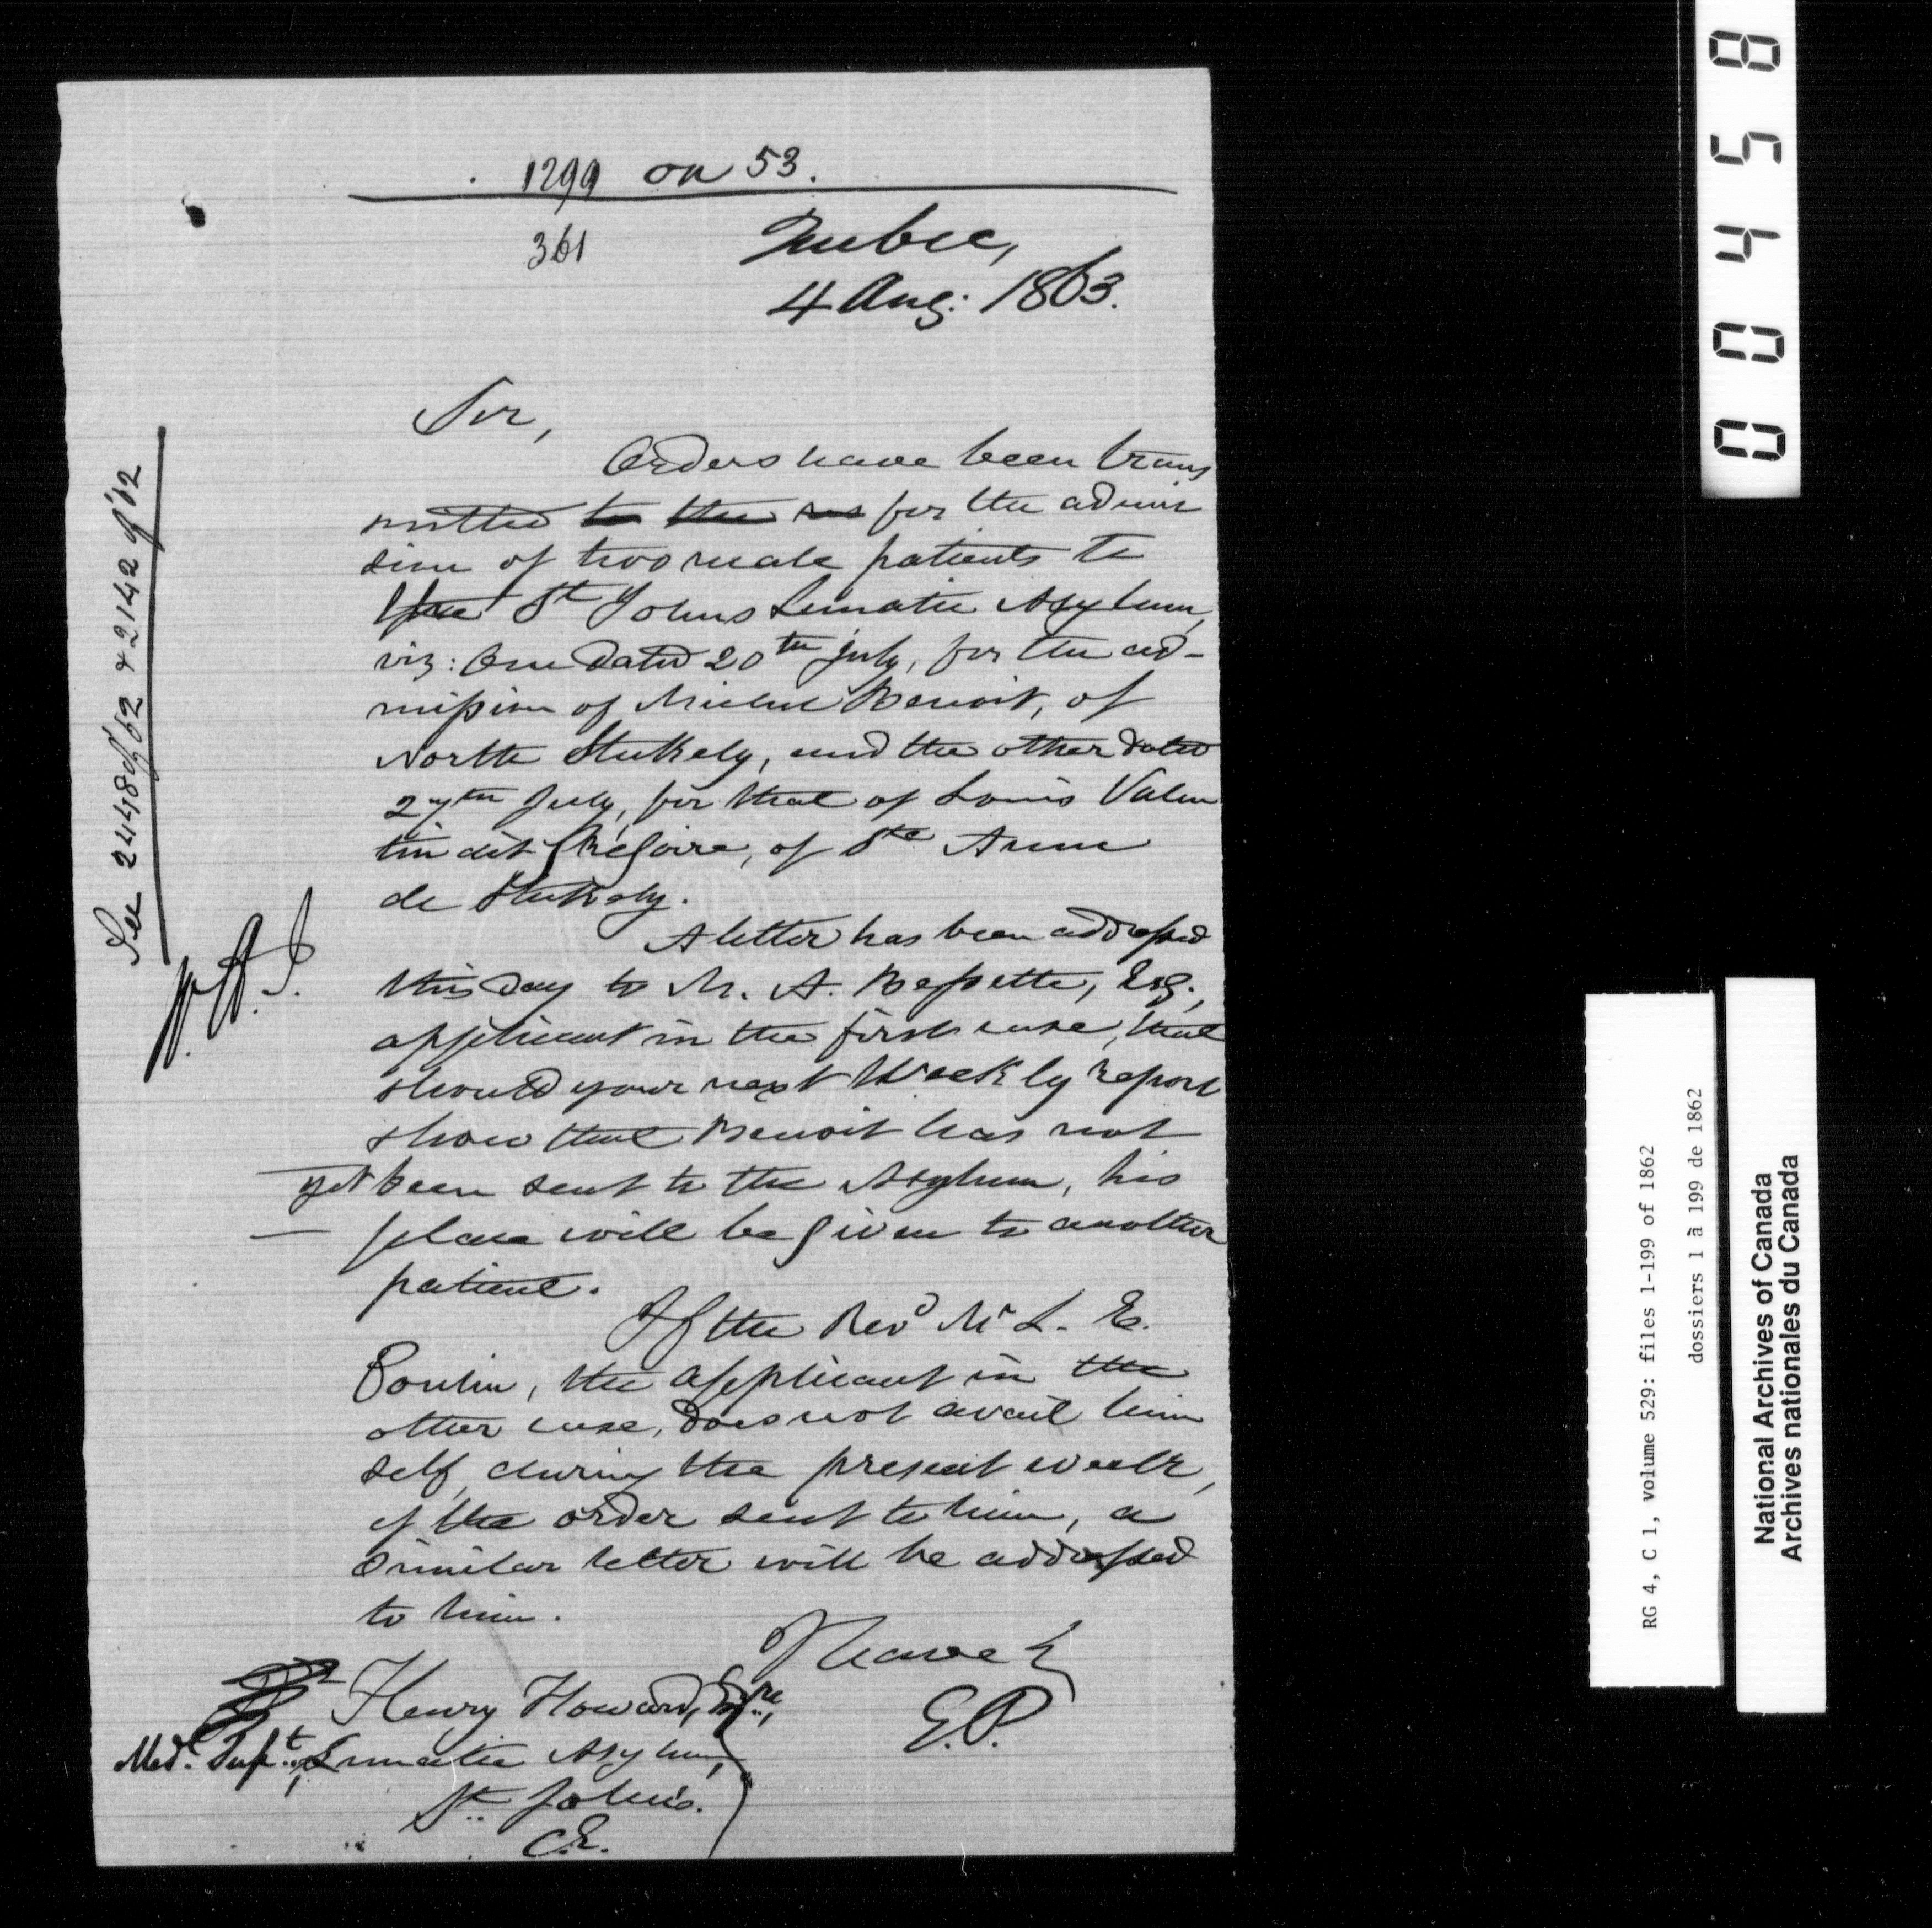 1299 on 53.
361
Quebec,
4 Aug: 1863.
Sir,
Orders have been trans
mitted to the for the admis
sion of two male patients to
the St Johns Lunatic Asylum,
viz: One dated 20th July, for the ad-
mission of Michel Benoit, of
North Stukely, and the other dated
27th July, for that of Louis Valen
tin dit Grégoire, of Ste Anne
de Stukely.
A letter has been addressed
this day to M. A. Bessette, Esq.,
applicant in the first case, that
should your next Weekly report
show that Benoit has not
yet been sent to the Asylum, his
place will be given to another
patient.
If the Revd Mr L. E.
Poulin, the applicant in the
other case, does not avail him
self, during the present week,
of the order sent to him, a
similar letter will be addressed
to him.
I have &
E.P.
Henry Howard, Esqre,
Med. Supt., Lunatic Asylum,
St. John's.
C.E.
See 2448 of '62 & 2142 of '62
00458
RG 4, C 1, volume 529: files 1-199 of 1862
dossiers 1 à 199 de 1862
National Archives of Canada
Archives nationales du Canada